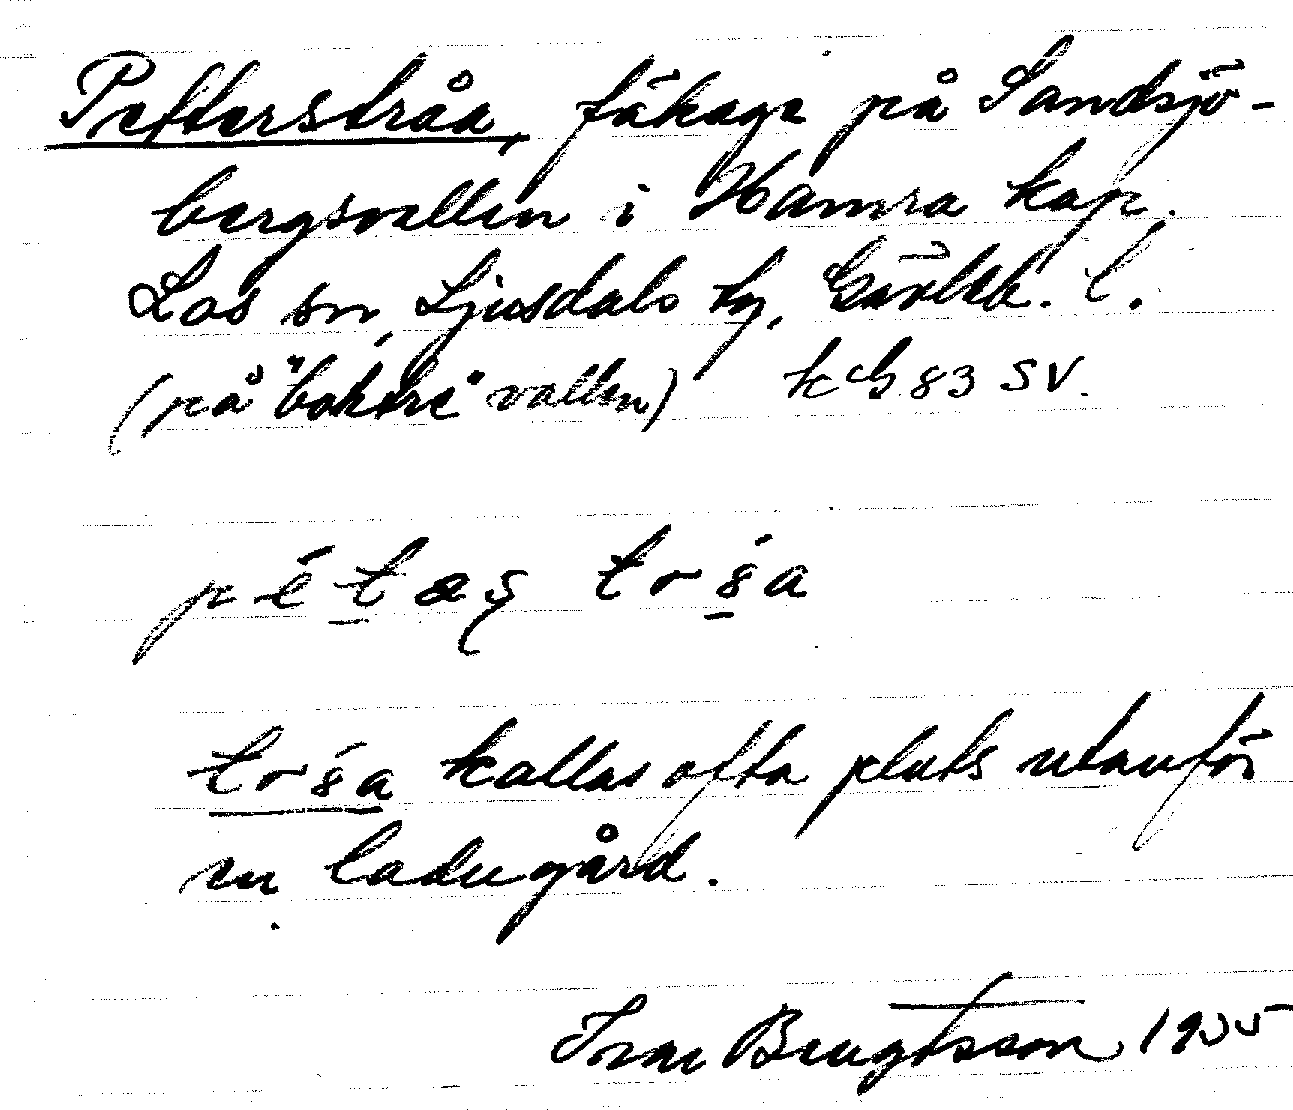 Petterstråa, fähage på Sandsjö-
bergsvallen i Hamra kap.
Los sn, Ljusdals tg, Gävleb. l.
(på "bakre" vallen) kG 83 SV.
trṡa kallas ofta plats utanför
en ladugård.
Ivar Bengtsson 1935